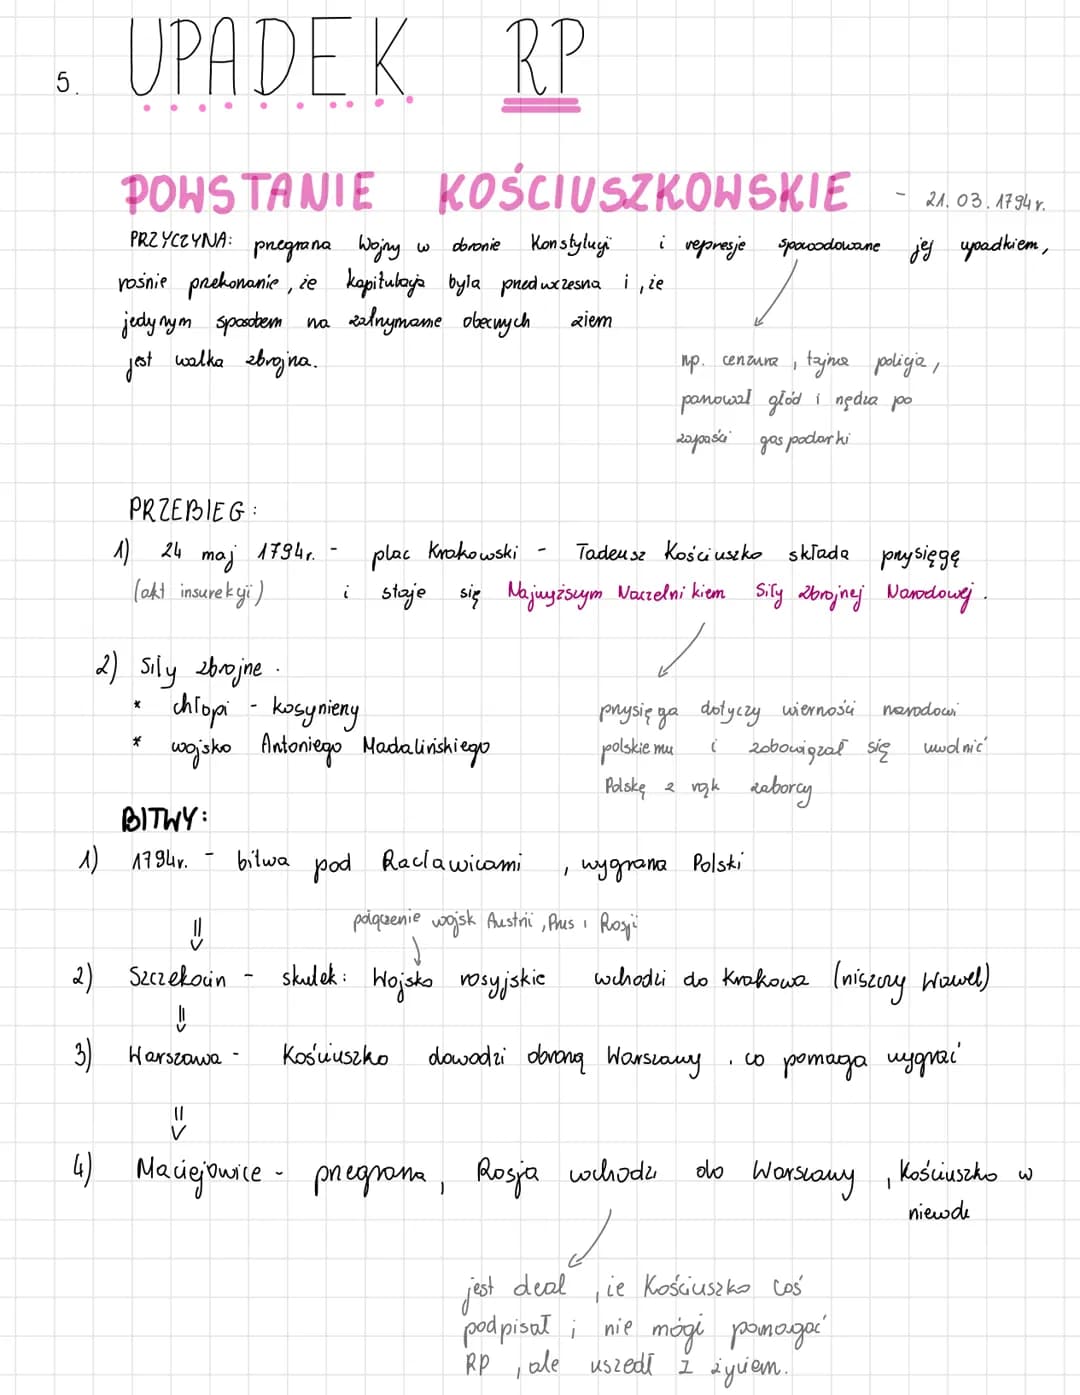 5. UPADEK RP
POWSTANIE KOŚCIUSZKOWSKIE - 21.03.1794r.
PRZYCZYNA: przegrana Wojny w obronie Konstytucji i represje spowodowane jej upadkiem,
rośnie przekonanie, że kapitulacja była przedwczesna i, że
jedynym sposobem na zatrzymanie obecnych ziem
jest walka zbrojna.
np. cenzura, tajna policja,
panował głód i nędza po
zapaści gospodarki
PRZEBIEG:
1) 24 maj 1794r. - plac Krakowski - Tadeusz Kościuszko składa przysięgę
(akt insurekcji) i staje się Najwyższym Naczelnikiem Siły zbrojnej Narodowej.
2) Siły zbrojne.
* chłopi - kosynierzy
* wojsko Antoniego Madalińskiego
przysięga dotyczy wierności narodowi
polskiemu i zobowiązał się uwolnić
Polskę z rąk zaborcy
BITWY:
1) 1794r. - bitwa pod Racławicami, wygrana Polski
połączenie wojsk Austrii, Prus i Rosji
2) Szczekocin - skutek: Wojsko rosyjskie wchodzi do Krakowa (niszczy Wawel)
3) Warszawa - Kościuszko dowodzi obroną Warszawy. co pomaga wygrać
4) Maciejowice - przegrana, Rosja wchodzi do Warszawy, Kościuszko w
niewoli
jest deal, że Kościuszko coś
podpisał i nie mógł pomagać
RP, ale uszedł z życiem.